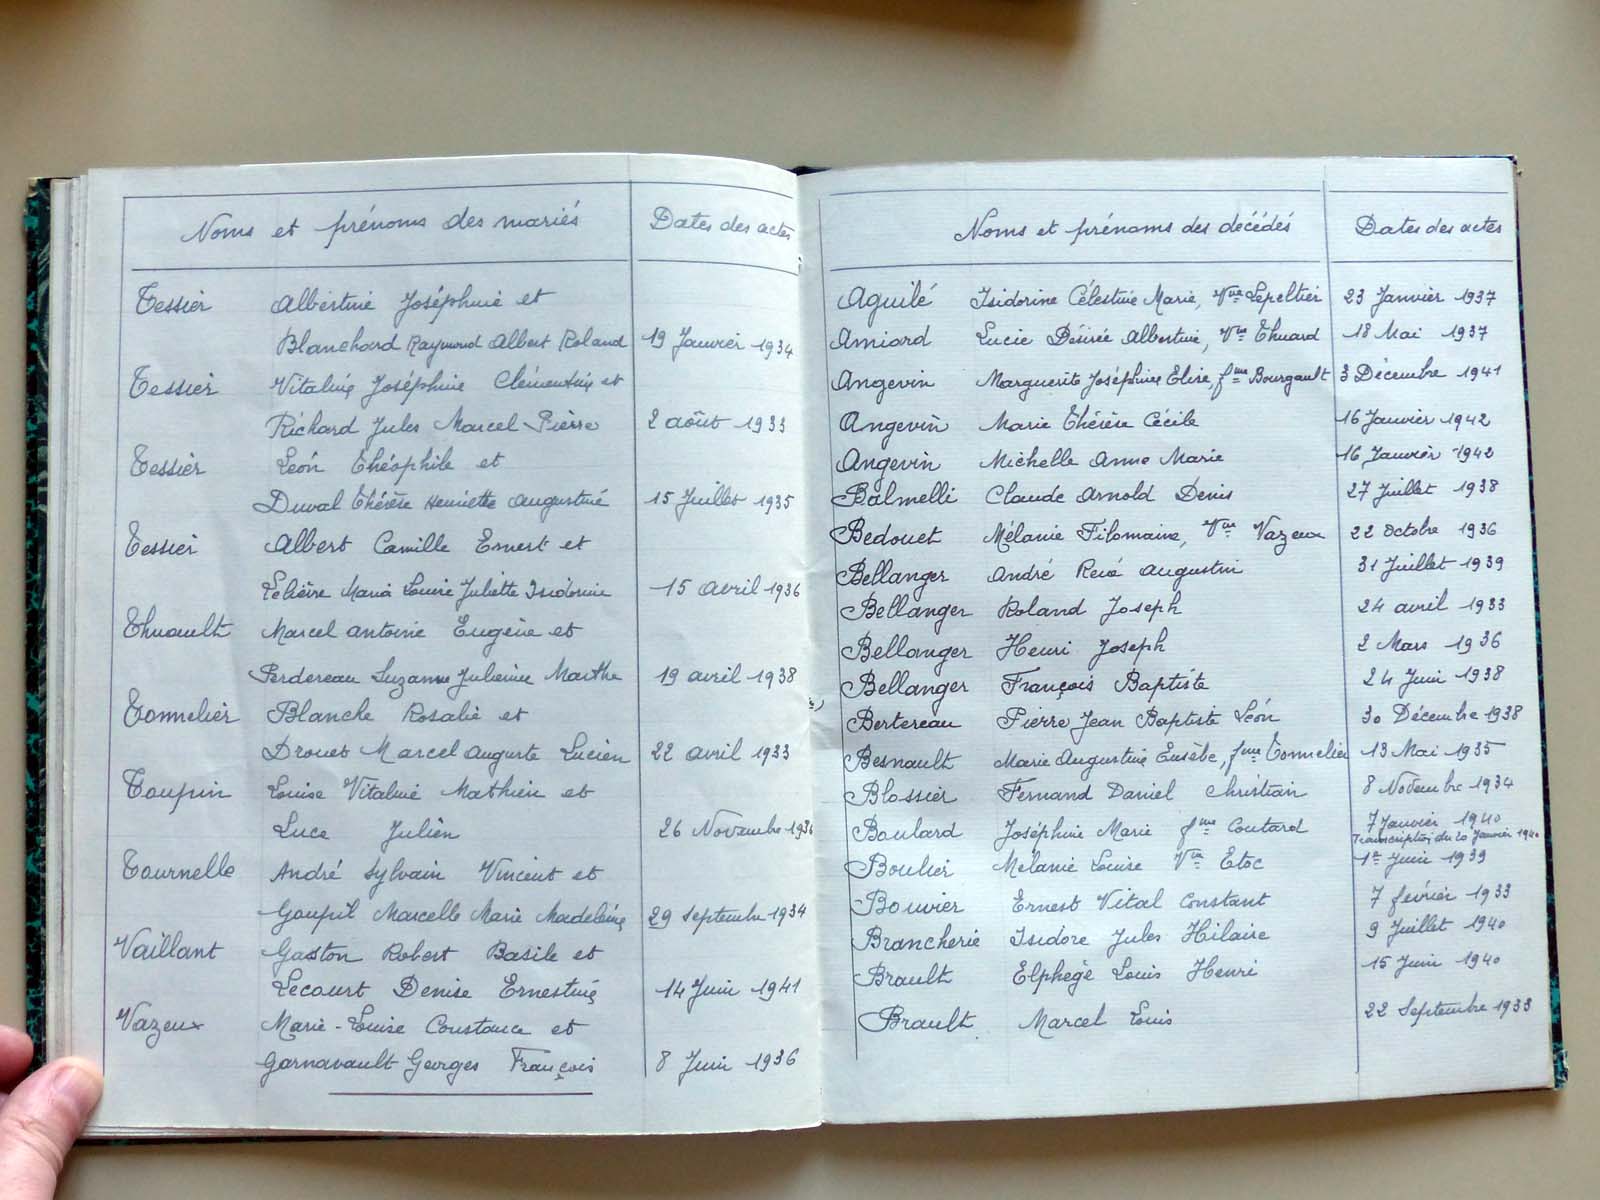 Noms et prénoms des mariés Dates des actes
Tessier Albertine Joséphine et
Blanchard Raymond Albert Roland 19 Janvier 1934
Tessier Vitaline Joséphine Clémentine et
Richard Jules Marcel Pierre 2 août 1933
Tessier Léon Théophile et
Duval Thérèse Henriette Augustine 15 Juillet 1935
Tessier Albert Camille Ernest et
Lelièvre Maria Louise Juliette Isidorine 15 avril 1936
Thuault Marcel Antoine Eugène et
Perdereau Suzanne Julienne Marthe 19 avril 1938
Tonnelier Blanche Rosalie et
Drouet Marcel Auguste Lucien 22 avril 1933
Toupin Louise Vitaline Mathieu et
Luce Julien 26 Novembre 1936
Tournelle André Sylvain Vincent et
Goupil Marcelle Marie Madeleine 29 septembre 1934
Vaillant Gaston Robert Basile et
Lecourt Denise Ernestine 14 Juin 1941
Vazeux Marie-Louise Constance et
Garnavault Georges François 8 Juin 1936
Noms et prénoms des décédés Dates des actes
Aguilé Isidorine Célestine Marie, Vve Lepeltier 23 Janvier 1937
Amiard Lucie Désirée Albertine, Vve Thuard 18 Mai 1937
Angevin Marguerite Joséphine Elise, fme Bourgault 3 Décembre 1941
Angevin Marie Thérèse Cécile 16 Janvier 1942
Angevin Michelle Anne Marie 16 Janvier 1942
Balmelli Claude Arnold Denis 27 Juillet 1938
Bedouet Mélanie Filomaine, Vve Vazeux 22 Octobre 1936
Bellanger André René Augustin 31 Juillet 1939
Bellanger Roland Joseph 24 avril 1933
Bellanger Henri Joseph 2 Mars 1936
Bellanger François Baptiste 24 Juin 1938
Bertereau Pierre Jean Baptiste Léon 30 Décembre 1938
Besnault Marie Augustine Eusèbe, fme Tonnelier 13 Mai 1935
Blossier Fernand Daniel Christian 8 Novembre 1934
Boulard Joséphine Marie fme Coutard 7 Janvier 1940
Transcription du 20 Janvier 1940
Boulier Mélanie Louise Vve Etoc 1er Juin 1939
Bouvier Ernest Vital Constant 7 février 1933
Brancherie Isidore Jules Hilaire 9 Juillet 1940
Brault Elphège Louis Henri 15 Juin 1940
Brault Marcel Louis 22 Septembre 1933